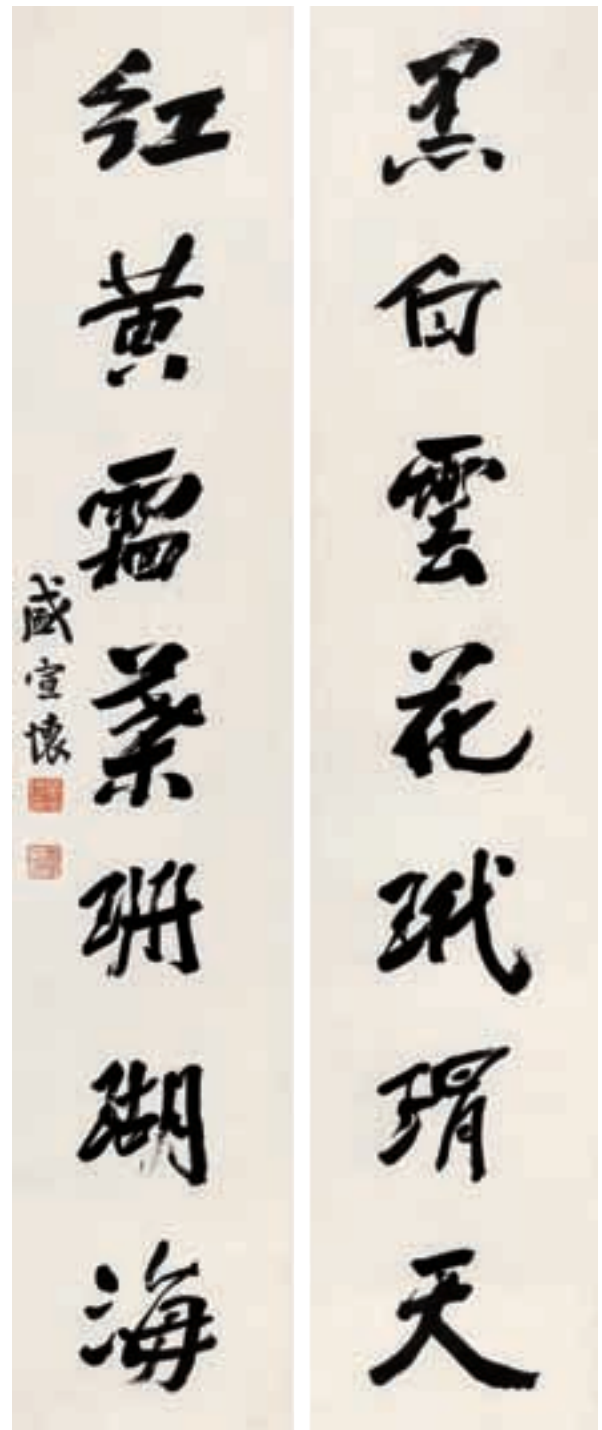 黑白雲花玳瑁天
紅黃霜葉珊瑚海
盛宣懷